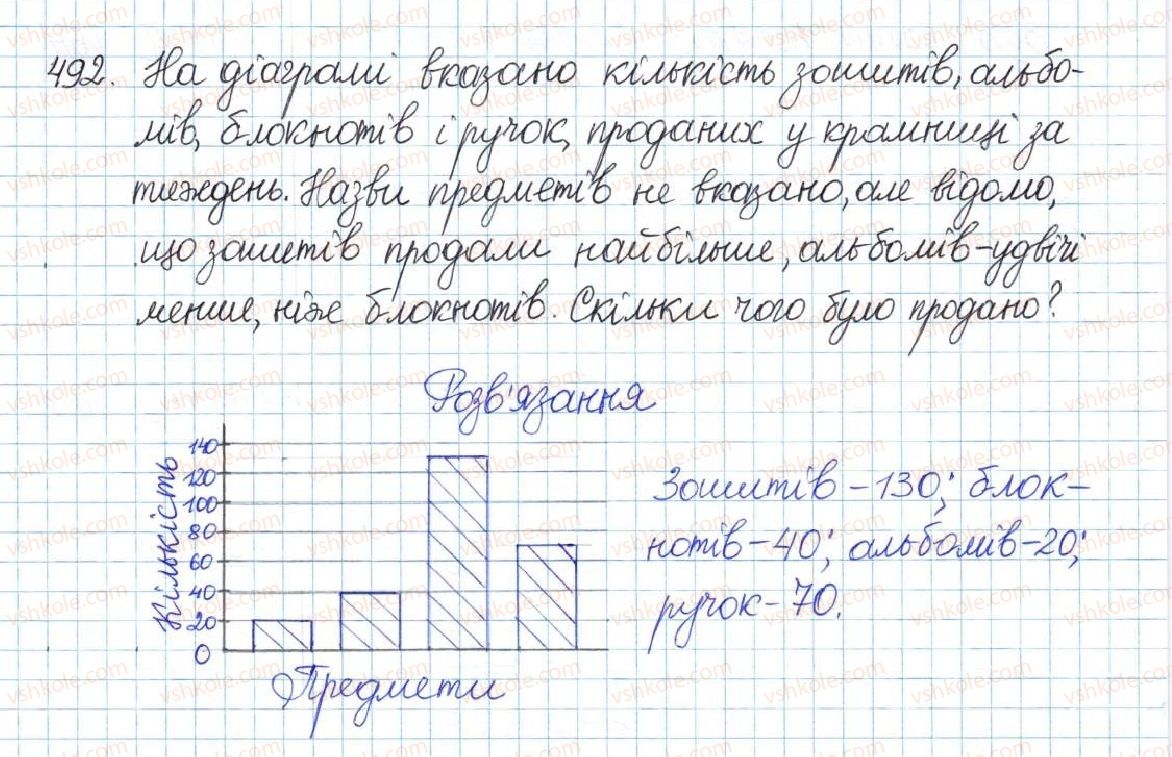 492. На діаграмі вказано кількість зошитів, альбо-
мів, блокнотів і ручок, проданих у крамниці за
тиждень. Назви предметів не вказано, але відомо,
що зошитів продали найбільше, альбомів - удвічі
менше, ніж блокнотів. Скільки чого було продано?
Розв'язання
Кількість
140
120
100
80
60
40
20
0
Предмети
Зошитів - 130; блок-
нотів - 40; альбомів - 20;
ручок - 70.
vshkole.com